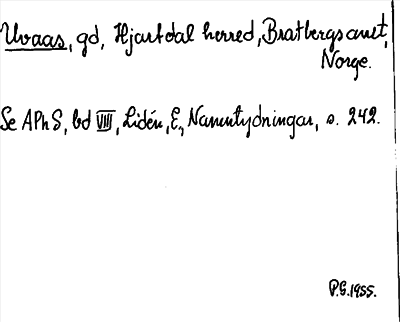 Uvaas, gd, Hjartdal herred, Bratbergs amt,
Norge.
Se APhS, bd VIII, Lidén, E., Namntydningar, s. 242.
P.G. 1955.